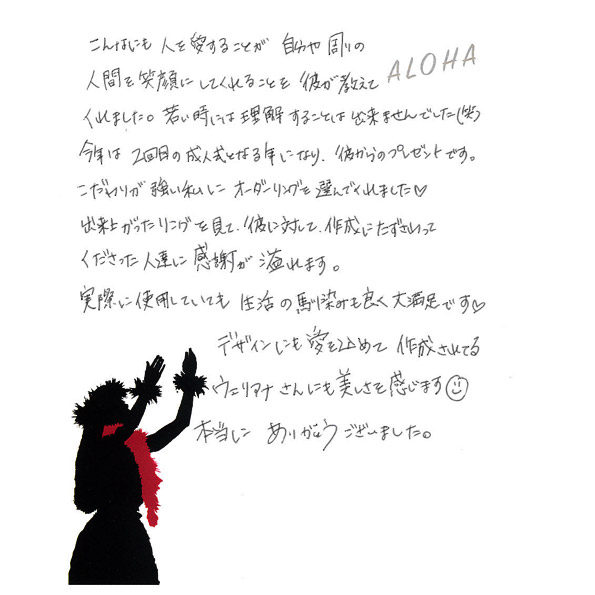 こんなにも 人を愛することが 自分や周りの
人間を笑顔にしてくれることを 彼が教えて
ALOHA
くれました。若い時には理解することは出来ませんでした(笑)
今年は 2回目の成人式となる年になり、彼からのプレゼントです。
こだわりが強い私に オーダーリングを選んでくれました♡
出来上がったリングを見て、彼に対して、作成にたずさわって
くださった人達に感謝が溢れます。
実際に使用していても 生活の馴染みも良く大満足です♡
デザインにも愛を込めて 作成されてる
ウェリアナさんにも美しさを感じます☺
本当に ありがとうございました。